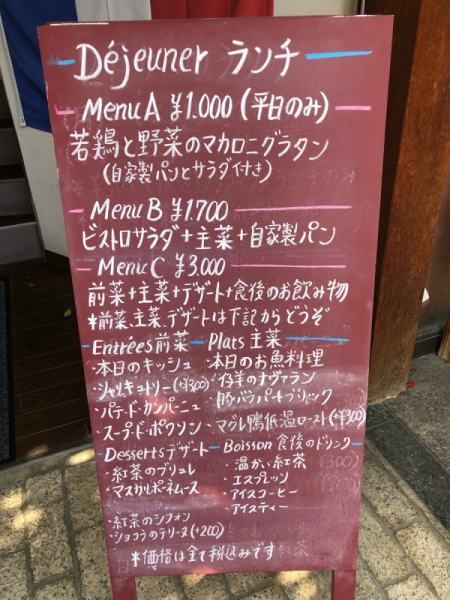 Déjeuner ランチ
Menu A ¥1.000 (平日のみ)
若鶏と野菜のマカロニグラタン
(自家製パンとサラダ付き)
Menu B ¥1.700
ビストロサラダ+主菜+自家製パン
Menu C ¥3.000
前菜+主菜+デザート+食後のお飲み物
*前菜、主菜、デザートは下記からどうぞ
Entrées 前菜
・本日のキッシュ
・シャルキュトリー(+¥300)
・パテ・ド・カンパーニュ
・スープ・ド・ポワソン
Plats 主菜
・本日のお魚料理
・仔羊のナヴァラン
・豚バラパートブリック
・マグレ鴨低温ロースト(+¥300)
Desserts デザート
・紅茶のブリュレ
・マスカルポーネムース
・紅茶のシフォン
・ショコラのテリーヌ(+200)
Boisson 食後のドリンク
・温かい紅茶
・エスプレッソ
・アイスコーヒー
・アイスティー
*価格は全て税込みです